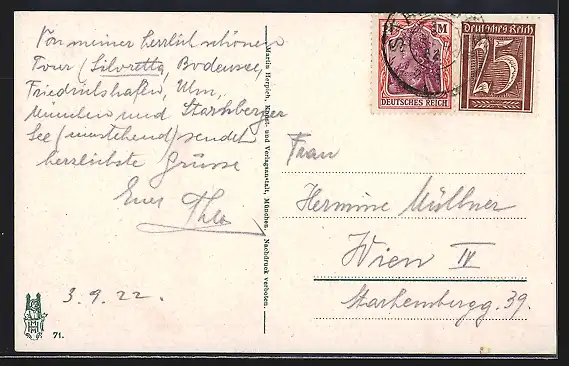 Von meiner herrlich schönen
Tour (Silvretta, Bodensee,
Friedrichshafen, Ulm,
München und Starnberger
See (umstehend) sendet
herzlichste Grüsse
Euer Theo
3.9.22.
71.
Martin Herpich, Kunst- und Verlagsanstalt, München. Nachdruck verboten.
M
DEUTSCHES REICH
Deutsches Reich
25
Frau
Hermine Müllner
Wien IV
Starhembergg. 39.